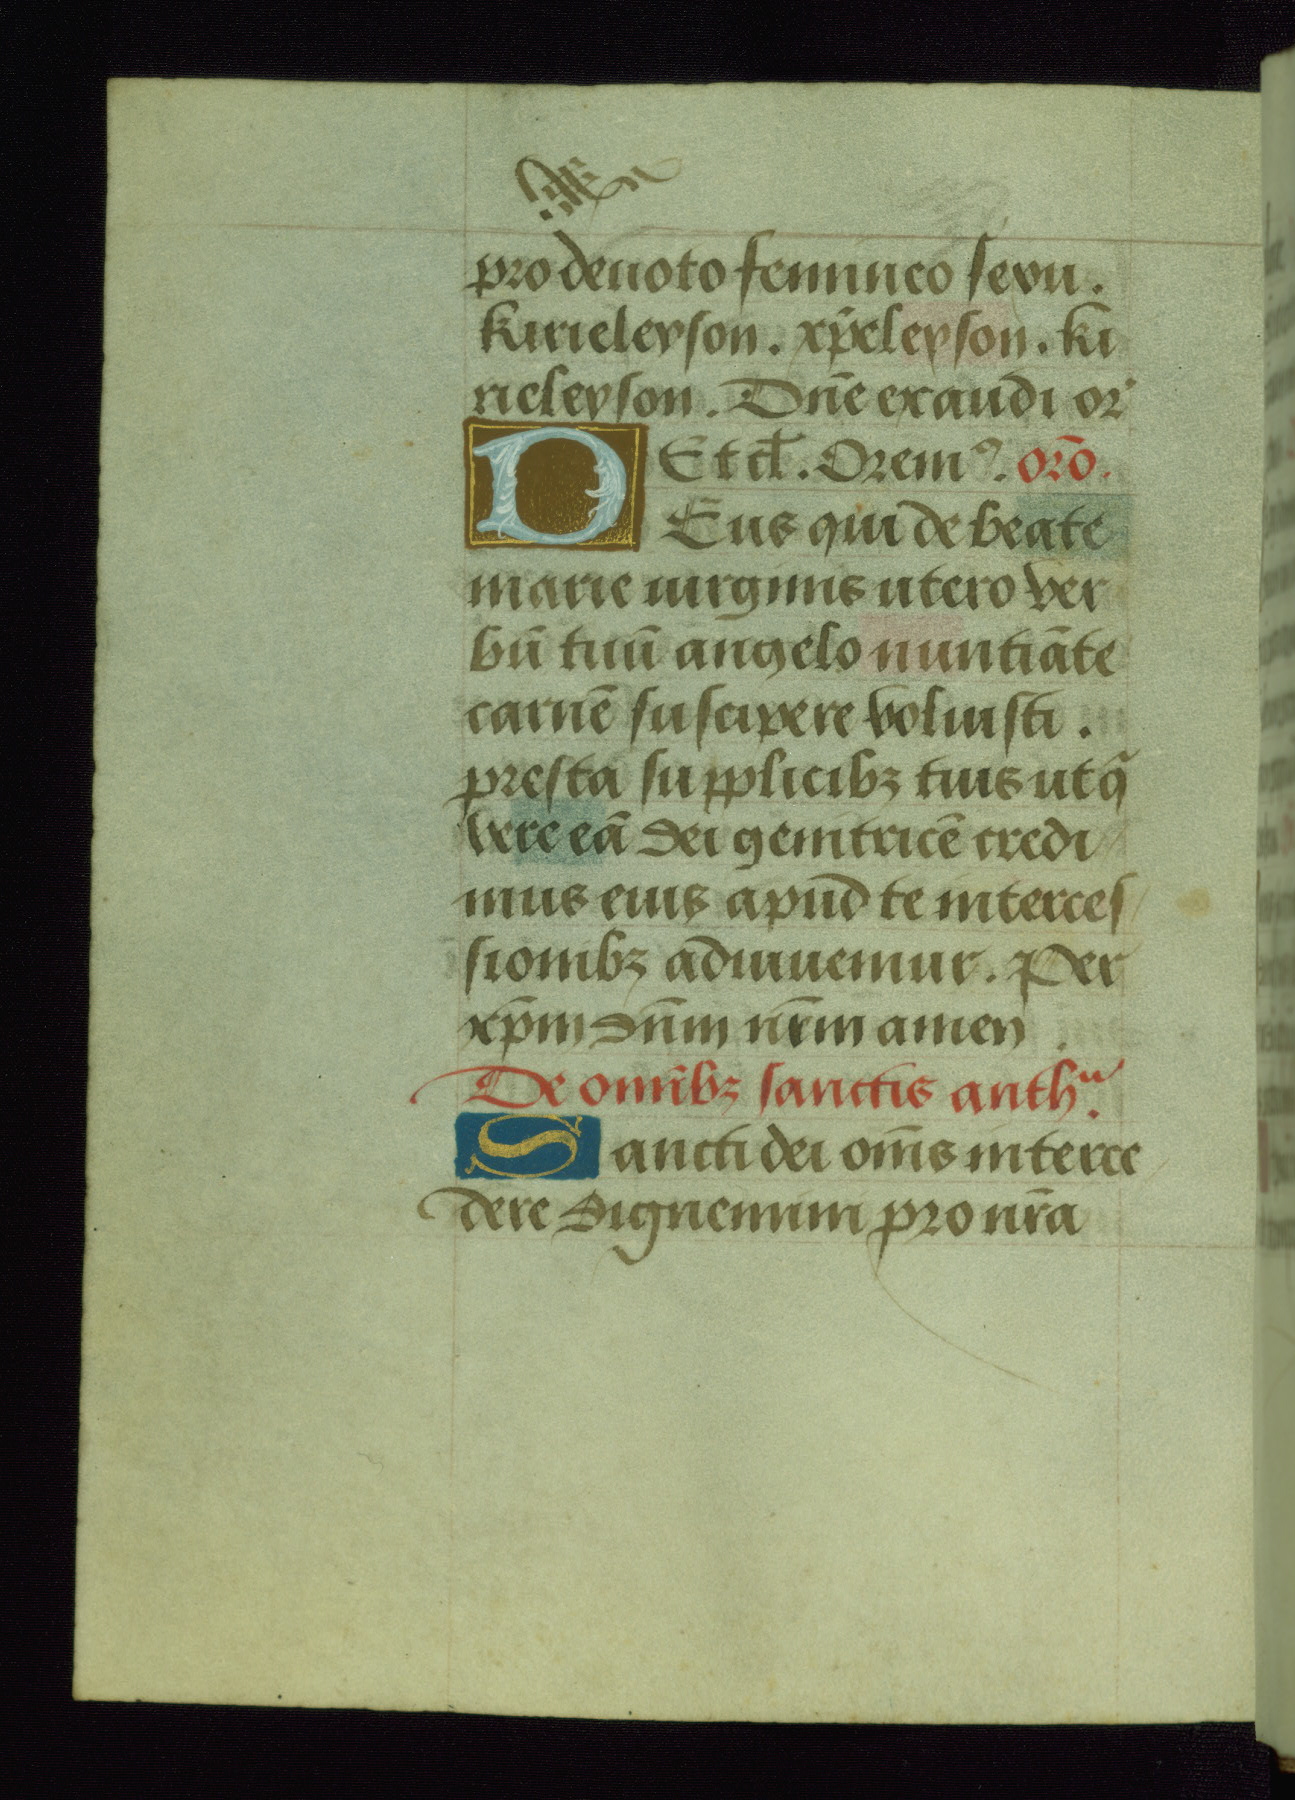 pro deuoto femineo sexu.
kirieleyson. xp̄eleyson. ki
rieleyson. Dn̄e exaudi or
Et cl̄. Oremꝰ. orō.
DEus qui de beate
marie uirginis utero ver
bū tuū angelo nuntiāte
carnē suscipere voluisti.
presta supplicibꝫ tuis ut q̄
vere eā dei genitricē credi
mus eius apud te interces
sionibꝫ adiuuemur. Per
xp̄m dn̄m nr̄m amen
De omībꝫ sanctis anthᵃ.
Sancti dei om̄s interce
dere dignemini pro nr̄a